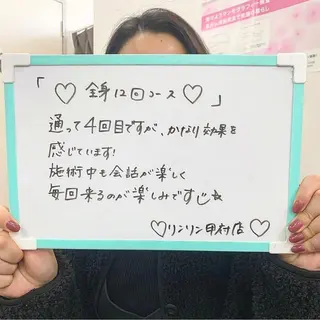 「♡全身12回コース♡」
通って4回目ですが、かなり効果を
感じています!
施術中も会話が楽しく
毎回来るのが楽しみです☆
♡リンリン甲村店♡